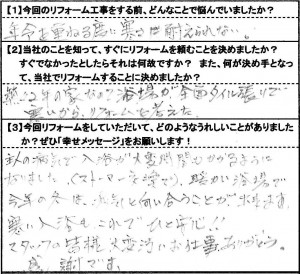 【1】今回のリフォーム工事をする前、どんなことで悩んでいましたか？
年令を重ねる度い寒さは耐えられない。
【2】当社のことを知って、すぐにリフォームを頼むことを決めましたか？
すぐでなかったとしたらそれは何故ですか？ また、何が決め手となって、当社でリフォームすることに決めましたか？
築 年の家 浴場が全面タイル張りで
寒いから、リフォームを考えた。
【3】今回リフォームをしていただいて、どのようなうれしいことがありましたか？ぜひ「幸せメッセージ」をお願いします！
主人の病気で入浴が大変 るように
なりました。(ストーマー交換で)。暖かい浴場で
今年の冬は、 と向い合うことが出来ます。
寒い入浴もこれでひと安心!!
スタッフの皆様 大変 いお仕事ありがとう。
感謝です。